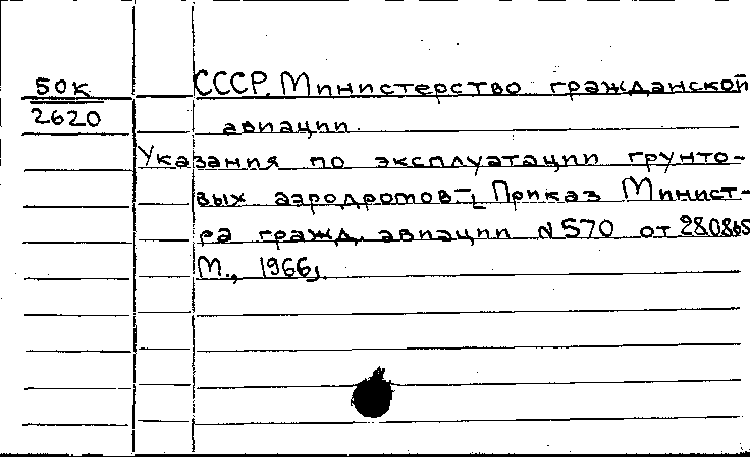 50к
2620
СССР. Министерство гражданской
авиации.
Указания по эксплуатации грунто-
вых аэродромов. Приказ Минист-
ра гражд. авиации N570 от 28.08.65
М., 1966,